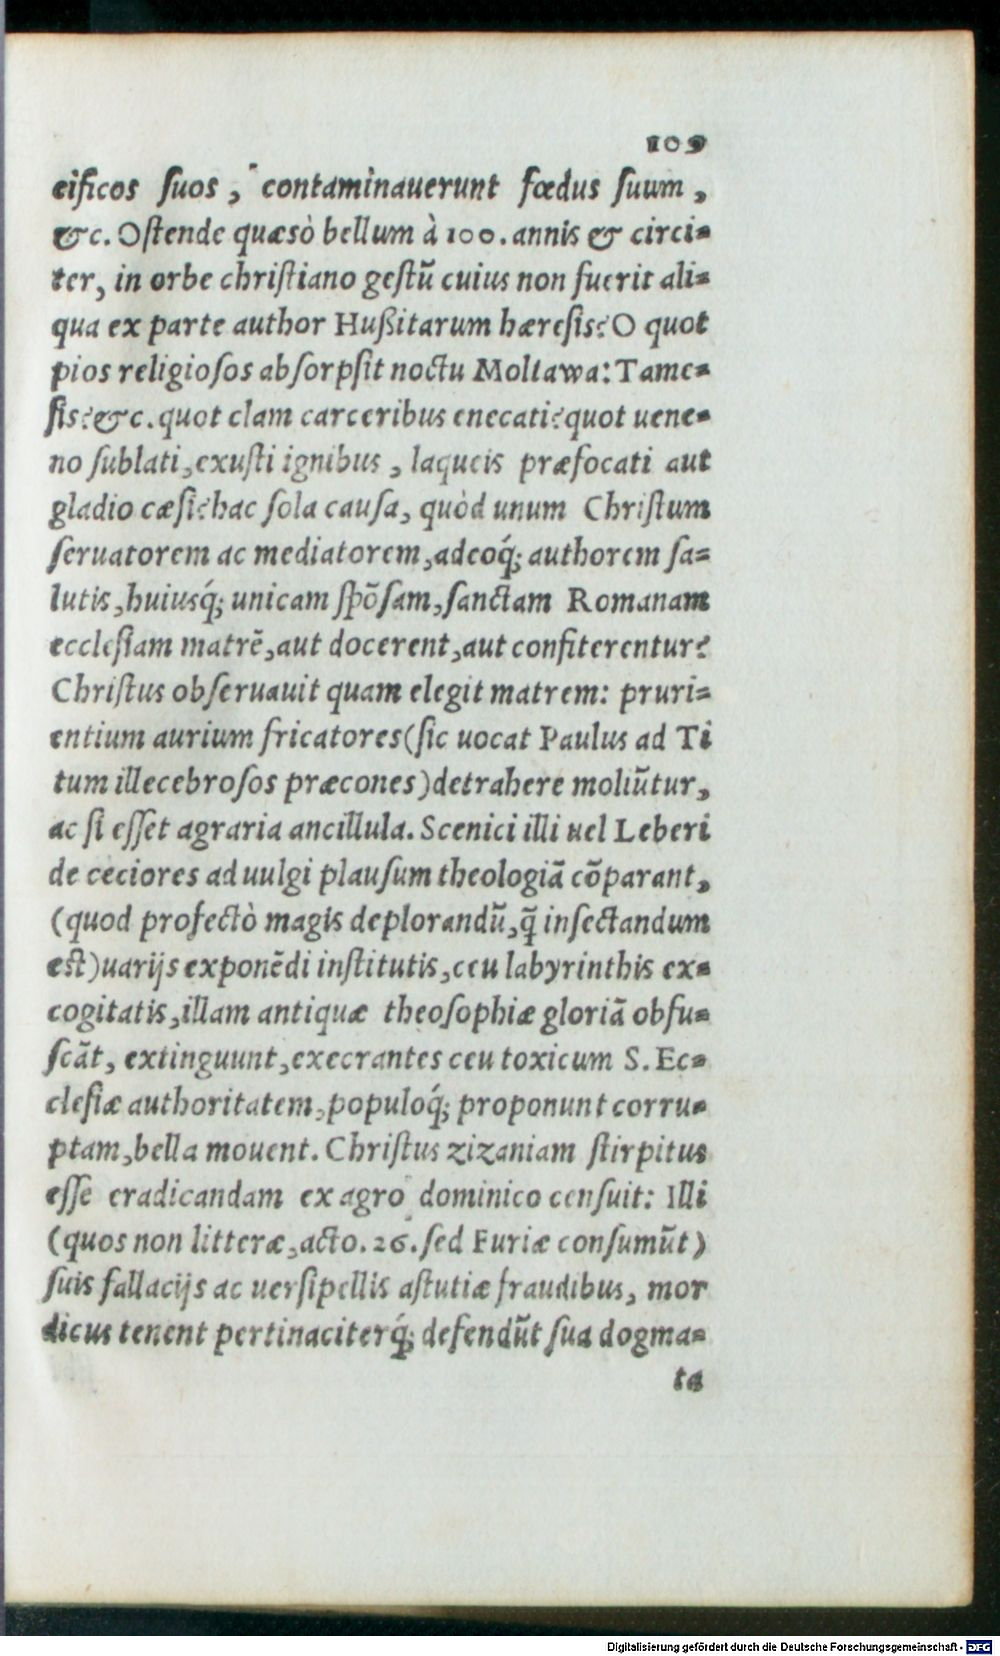 109
cificos ſuos, contaminauerunt fœdus ſuum,
&c. Oſtende quæsò bellum à 100. annis & circi=
ter, in orbe chriſtiano geſtũ cuius non fuerit ali=
qua ex parte author Hußitarum hæreſis? O quot
pios religioſos abſorpſit noctu Moltawa: Tame=
ſis? &c. quot clam carceribus enecati? quot uene=
no ſublati, exuſti ignibus, laqueis præfocati aut
gladio cæſi? hac ſola cauſa, quòd unum Chriſtum
ſeruatorem ac mediatorem, adeoq́; authorem ſa=
lutis, huiusq́; unicam ſpõſam, ſanctam Romanam
eccleſiam matrẽ, aut docerent, aut confiterentur?
Chriſtus obſeruauit quam elegit matrem: pruri=
entium aurium fricatores (ſic uocat Paulus ad Ti
tum illecebroſos præcones) detrahere moliũtur,
ac ſi eſſet agraria ancillula. Scenici illi uel Leberi
de ceciores ad uulgi plauſum theologiã cõparant,
(quod profectò magis deplorandũ, q̃ inſectandum
est) uarijs exponẽdi inſtitutis, ceu labyrinthis ex=
cogitatis, illam antiquæ theoſophiæ gloriã obfu=
ſcãt, extinguunt, execrantes ceu toxicum S. Ec=
cleſiæ authoritatem, populoq́; proponunt corru=
ptam, bella mouent. Chriſtus zizaniam ſtirpitus
eſſe eradicandam ex agro dominico cenſuit: Illi
(quos non litteræ, acto. 26. ſed Furiæ conſumũt)
ſuis fallacijs ac uerſipellis aſtutiæ fraudibus, mor
dicus tenent pertinaciterq́; defendũt ſua dogma=
ta
Digitalisierung gefördert durch die Deutsche Forschungsgemeinschaft - DFG